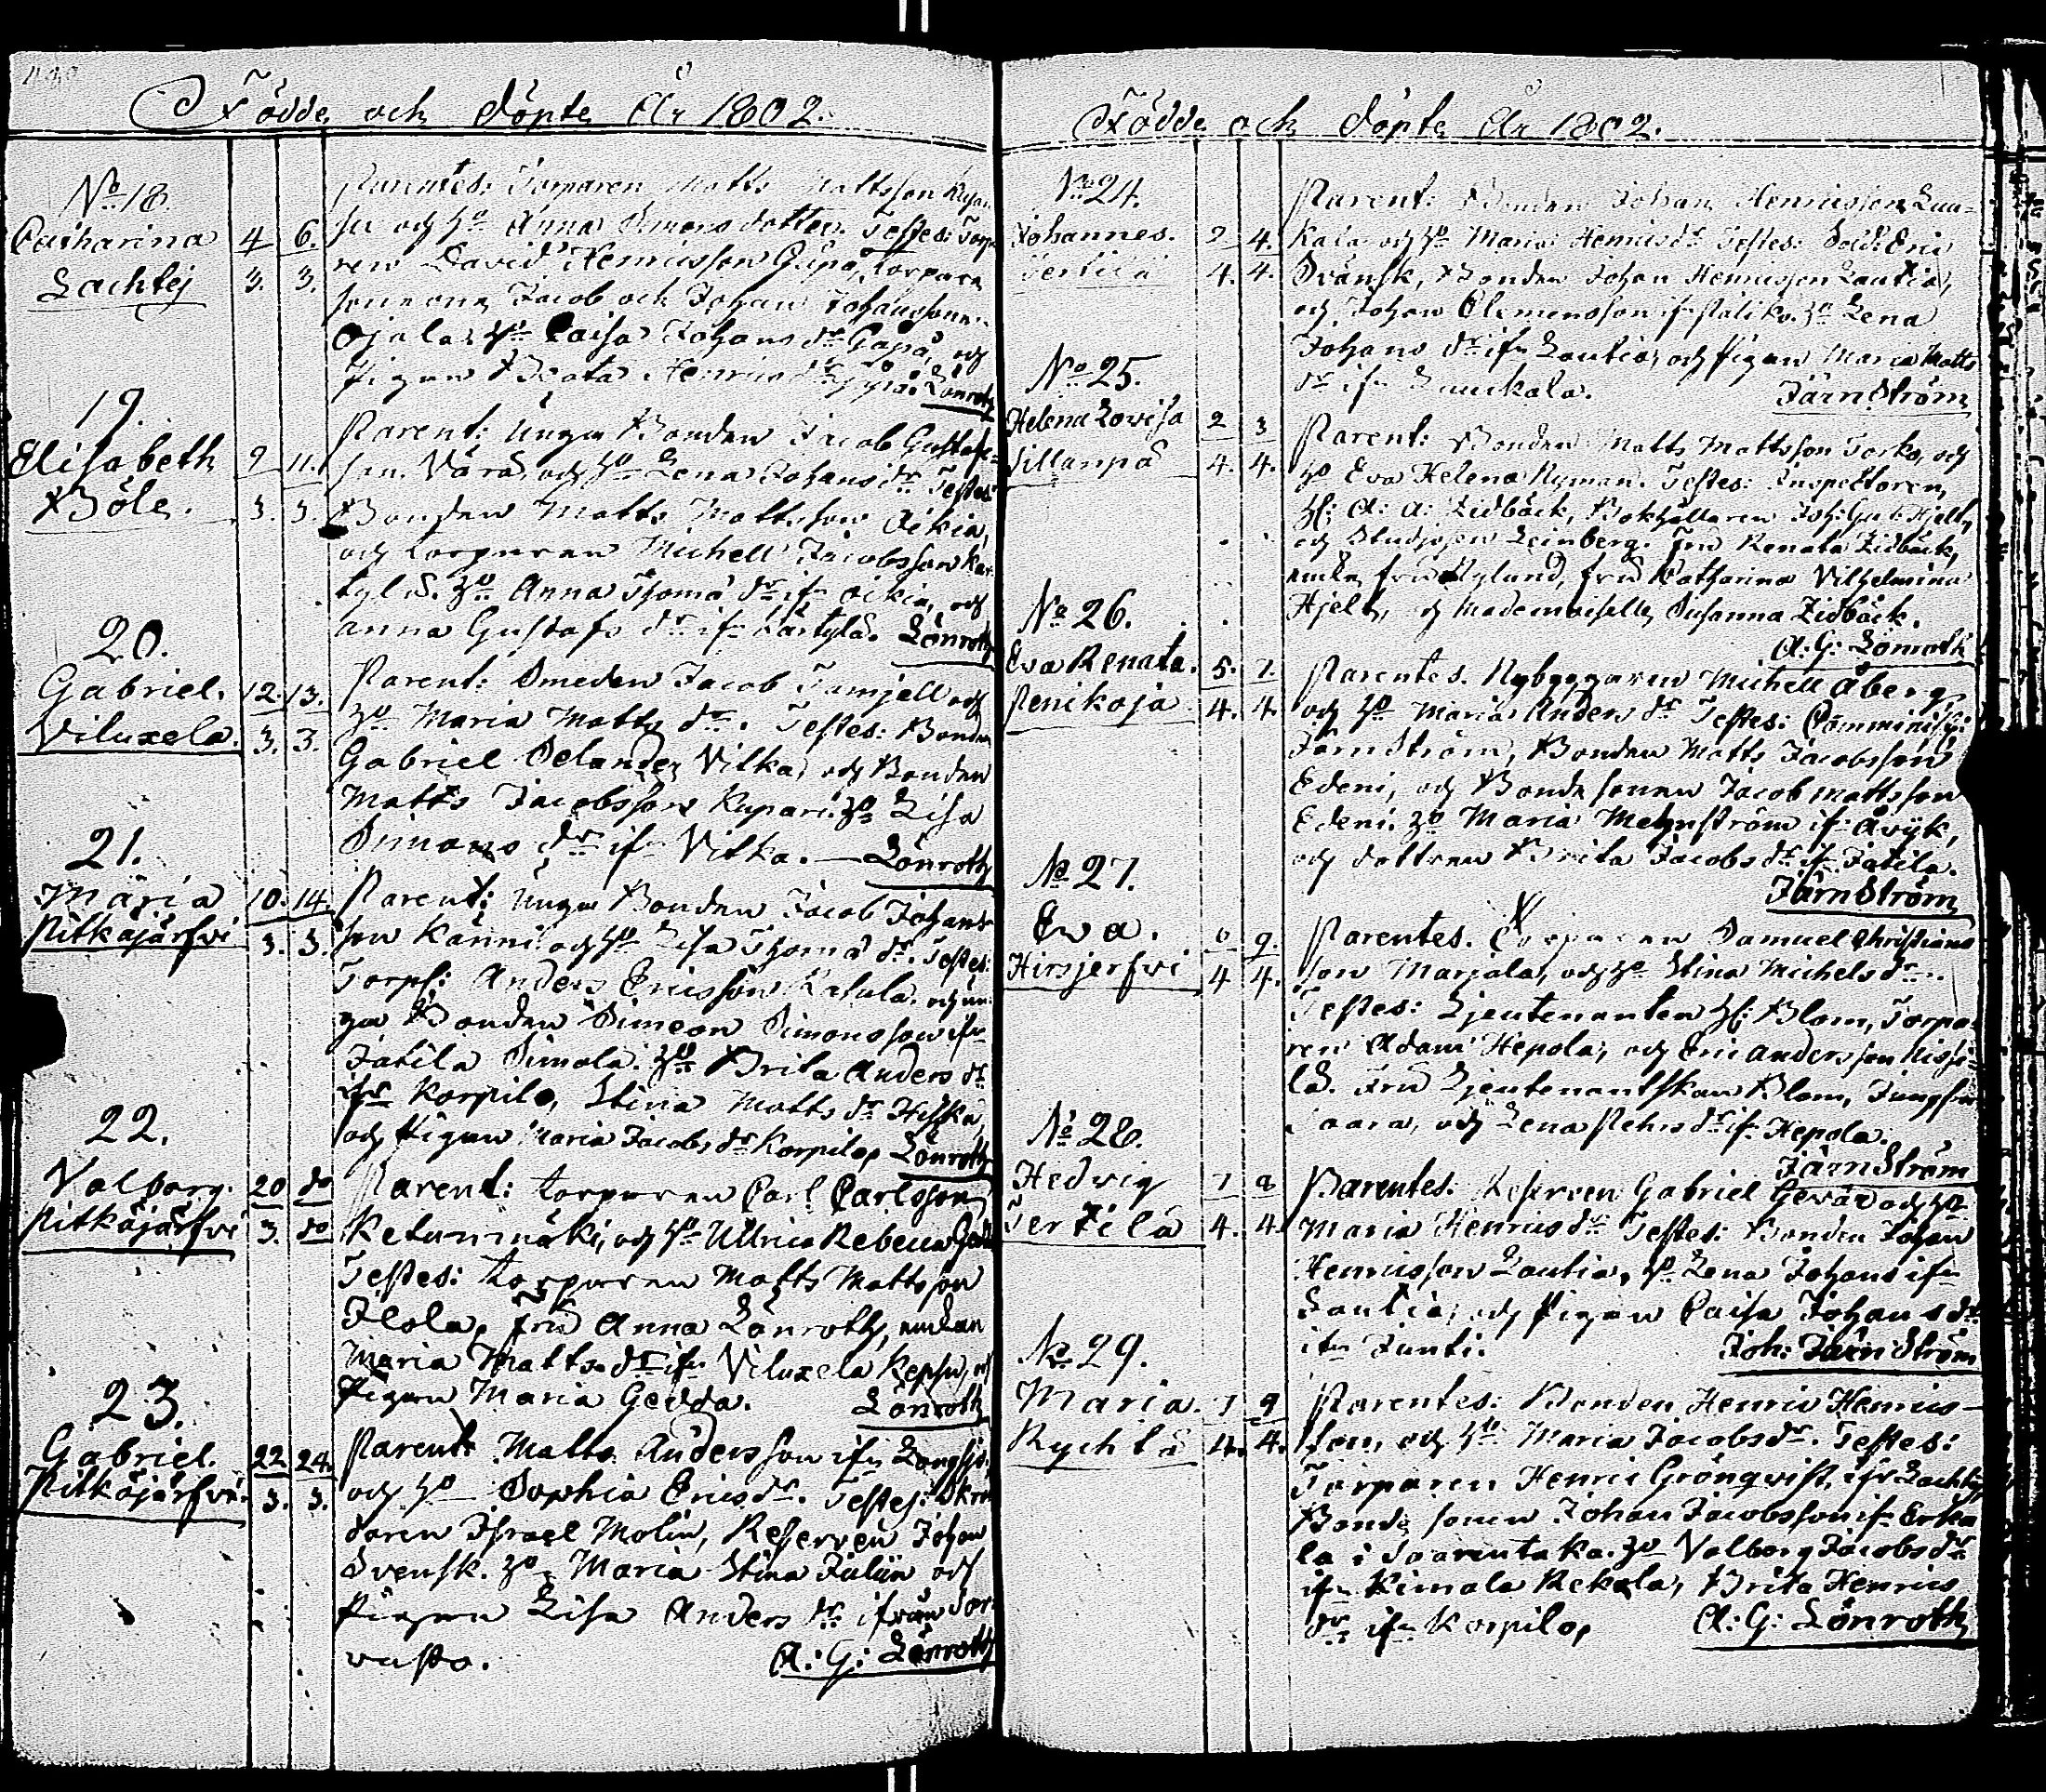 Födde och döpte År 1802.
No 18.
Catharina 4 6.
Lachtej 3. 3.
Parentes: Torparen Matts Mattsson
och hu Anna Simons dotter. Testes: Torpa-
ren David Henricsson Gåpå, torpare
sönerne Jacob och Johan Johanssöner
Ojala, hu Caisa Johans dr Gåpå, och
Pigan Beata Henrics dr Gåpå. Lönroth
19.
Elisabeth 9 11.
Böle. 3. 3.
Parent: Unga Bonden Jacob Gustafs-
son Värä, och hu Lena Johans dr. Testes:
Bonden Matts Mattsson Äikiä,
och torparen Michell Jacobsson Kar-
tylä. hu Anna Thoma dr ifr Äikiä, och
Anna Gustafs dr ifr Kartylä. Lönroth
20.
Gabriel. 12. 13.
Viluxela. 3. 3.
Parent: Smeden Jacob Tamjell och
hu Maria Matts dr. Testes: Bonden
Gabriel Selander Vitka, och Bonden
Matts Jacobsson Kypari. hu Lisa
Simons dr ifr Vitka. — Lönroth
21.
Maria 10. 14.
Pitkäjärfvi 3. 3.
Parent: Unga Bonden Jacob Johans-
son Känni och hu Lisa Thoma dr. Testes:
Torp: Anders Ericsson Kasula, och un-
ga Bonden Simeon Simonsson ifr
Jatila Simola. hu Brita Anders dr
ifr Korpilo, Stina Matts dr Hiska,
och Pigan Maria Jacobs dr Korpilo, Lönroth
22.
Valborg. 20 do
Pitkäjärfvi 3. do
Parent: torparen Carl Carlsson
Ketunmäki, och hu Ullrica Rebecca
Testes: torparen Matts Mattsson
Ilola, fru Anna Lönroth, enkan
Maria Matts dr ifr Viluxela Keppu, och
Pigan Maria Gedda. Lönroth
23.
Gabriel. 22 24.
Pitkäjärfvi. 3. 3.
Parent: Matts Andersson ifr Långsjö,
och hu Sophia Erics dr. Testes: Skräd-
daren Israel Molin, Reserven Johan
Svensk. hu Maria Stina Julin och
Pigan Lisa Anders dr ifrån Sor-
vasto. A: G: Lönroth
Födde och döpte År 1802.
No 24.
Johannes. 2 4.
Tertilä 4. 4.
Parent: Bonden Johan Henricsson Luu-
kala och hu Maria Henrics dr Testes: Sold: Eric
Svänsk, Bonden Johan Henricsson Lautia,
och Johan Clemensson ifr Paliko. hu Lena
Johans dr ifr Lautia, och Pigan Maria Matts
dr ifr Luukala. Järnström
No 25.
Helena Lovisa 2 3
Villanpä 4. 4.
Parent: Bonden Matts Mattsson Torko, och
hu Eva Helena Nyman. Testes: Inspectoren
H: A: A: Lidbäck, Bokhållaren Joh: Gust: Hjelt,
och Studiosen Leinberg. Fru Renata Lidbäck,
enke fru Nylund, fru Catharina Vilhelmina
Hjelt, och Mademoiselle Susanna Lidbäck.
A: G: Lönroth
No 26.
Eva Renata. 5. 7.
Penikoja. 4. 4.
Parentes. Nybyggaren Michell Åberg,
och hu Maria Anders dr Testes: Comminist:
Järnström, Bonden Matts Jacobsson
Edeni, och Bonde sonen Jacob Mattsson
Edeni. hu Maria Malmström ifr Åvijk,
och dottren Brita Jacobs dr ifr Jatila.
Järnström
No 27.
Eva. 6 9.
Hirsjerfvi 4 4.
Parentes. Torparen Samuel Christians
son Marjala, och hu Stina Michels dr.
Testes: Ljeutenanten H: Blom, Torpa-
ren Adam Hepola, och Eric Andersson Nissi-
lä. Fru Ljeutenantskan Blom, Jungfru
aara, och Lena Pehrs dr ifr Hepola.
Järnström
No 28.
Hedvig 7 8
Tertilä 4. 4.
Parentes. Reserven Gabriel Gevär och hu
Maria Henrics dr Testes: Bonden Johan
Henricsson Lautia, hu Lena Johans ifr
Lautia, och Pigan Caisa Johans dr
ifr Junti. Joh: Järnström
No 29.
Maria. 7 9
Rychtä 4. 4.
Parentes: Bonden Henric Henrics-
son, och hu Maria Jacobs dr. Testes:
Torparen Henric Grönqvist ifr Lachtej,
Bonde sonen Johan Jacobsson ifr Erka
la i Saarentaka. hu Valborg Jacobs dr
ifr Kimala Rekola, Brita Henrics
dr ifr Korpilo, A: G: Lönroth